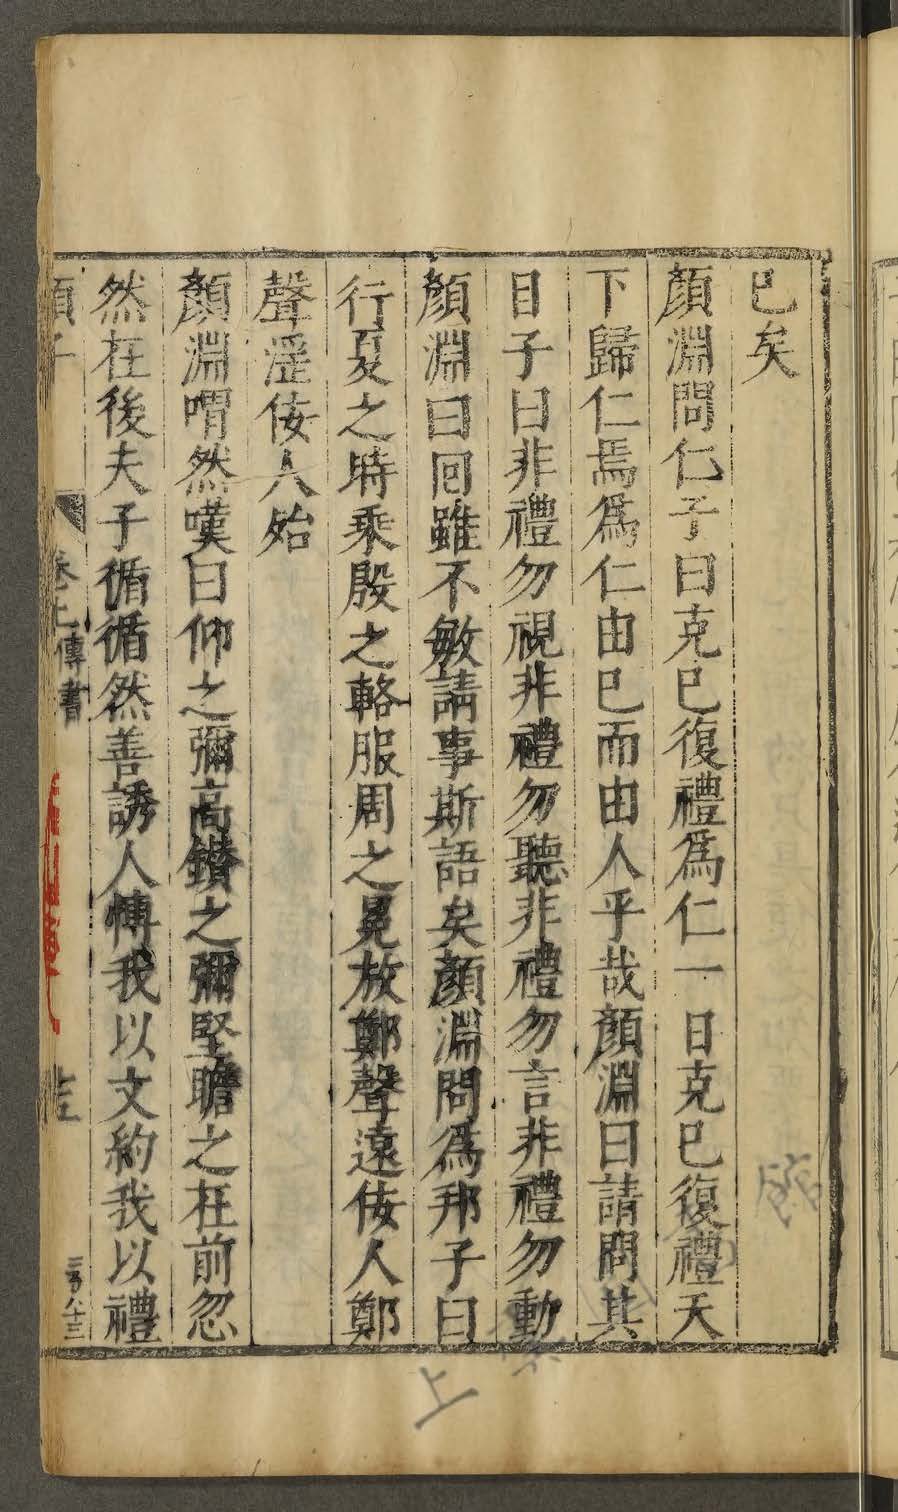 已矣
顏淵問仁子曰克已復禮爲仁一日克已復禮天
下歸仁焉爲仁由已而由人乎哉顏淵曰請問其
目子曰非禮勿視非禮勿聽非禮勿言非禮勿動
顏淵曰回雖不敏請事斯語矣顏淵問爲邦子曰
行夏之時乘殷之輅服周之冕放鄭聲遠佞人鄭
聲淫佞人殆
顏淵喟然嘆曰仰之彌高鑽之彌堅瞻之在前忽
然在後夫子循循然善誘人愽我以文約我以禮
顏子
卷上傳書
上